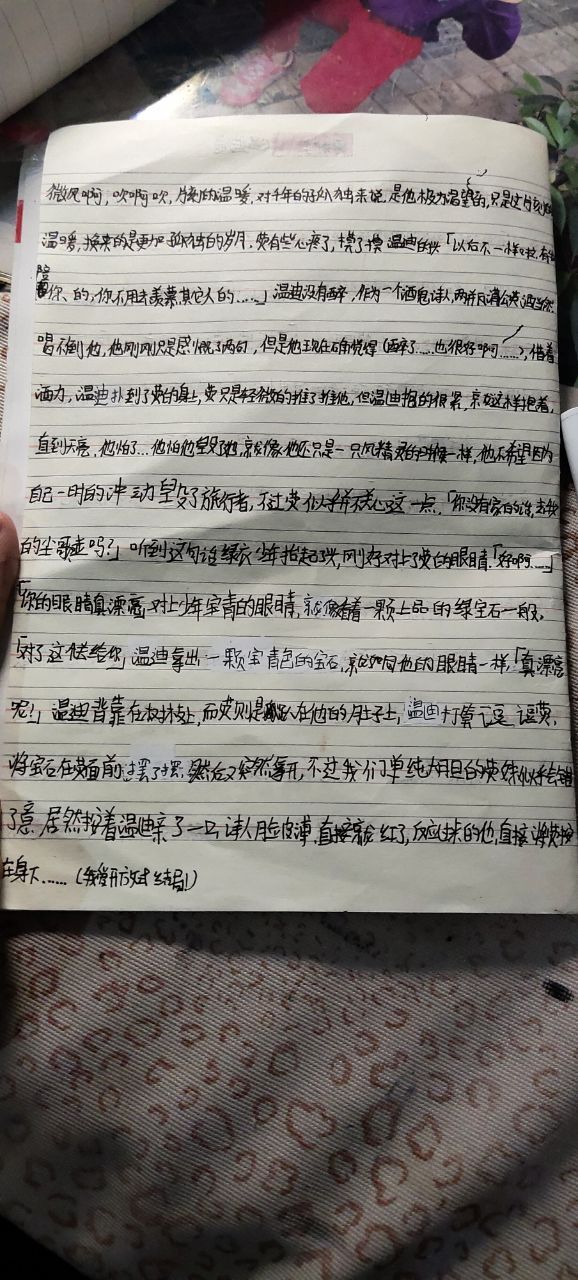 微风啊，吹啊吹，片刻的温暖，对千年的孤独来说，是他极为渴望的，只是这片刻的
温暖，换来的是更加孤独的岁月，荧有些心疼了，摸了摸温迪的头「以后不一样啦，有我
陪你、的，你不用去羡慕其它人的……」温迪没有醉，作为一个酒鬼诗人，两杯风蒲公英酒当然
喝不倒他，他刚刚只是感慨了两句，但是他现在确觉得（醉了……也很好啊……），借着
酒力，温迪扑到了荧的身上，荧只是轻微的推了推他，但温迪抱的很紧，就这样抱着，
直到天亮，他怕了…他怕他毁了她，就像他还只是一只风精灵的时候一样，他不希望因为
自己一时的冲动毁了旅行者，不过荧似乎并不关心这一点，「你没有家的话，去我
的尘歌壶吗？」听到这句话绿衣少年抬起了头，刚好对上了荧的眼睛「好啊……」
「你的眼睛真漂亮」对上少年宝青的眼睛，就像看着一颗上品的绿宝石一般，
「对了这个送给你」温迪拿出一颗宝青色的宝石，就如同他的眼睛一样，「真漂亮
呢！」温迪背靠在树枝上，而荧则是趴在他的肚子上，温迪打算逗逗荧，
将宝石在荧面前摆了摆，然后又突然拿开，不过我们单纯大胆的荧妹似乎会错
了意，居然按着温迪亲了一口，诗人脸皮薄，直接就红了，反应过来的他，直接将荧按
在身下……（我爱开放式结局！）